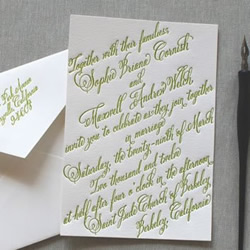 Together with their families
Sophie Briene Cornish
and
Maxwell Andrew Welch
invite you to celebrate as they join together
in marriage
Saturday, the twenty-ninth of March
Two thousand and twelve
at half after four o'clock in the afternoon
Saint Jude Church of Berkeley
Berkeley, California